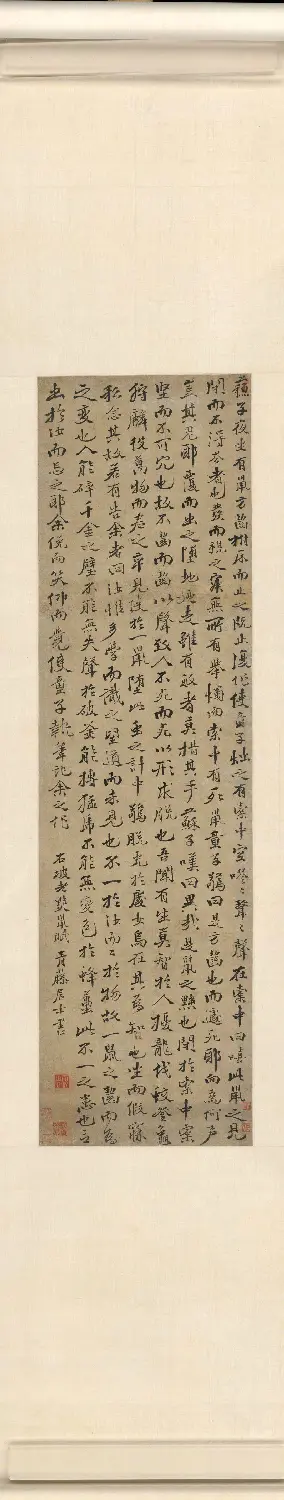 蘇子夜坐有鼠方齧拊床而止之既止復作使童子燭之有橐中空嘐嘐聲聲在橐中曰嘻此鼠之見
閉而不得去者也發而視之寂無所有舉燭而索中有死鼠童子驚曰是方齧也而遽死耶向為何声
豈其鬼耶覆而出之墮地乃走雖有敏者莫措其手蘇子嘆曰異哉是鼠之黠也閉於橐中橐
堅而不可穴也故不齧而齧以聲致人不死而死以形求脫也吾聞有生莫智於人擾龍伐蛟登龜
狩麟役萬物而君之卒見使於一鼠墮此蟲之計中驚脫兔於處女烏在其為智也坐而假寐
私念其故若有告余者曰汝惟多學而識之望道而未見也不一於汝而二於物故一鼠之齧而為
之變也人能碎千金之璧不能無失聲於破釜能搏猛虎不能無變色於蜂蠆此不一之患也言
出於汝而忘之耶余俛而笑仰而覺使童子執筆記余之作
右坡老黠鼠賦青藤居士書